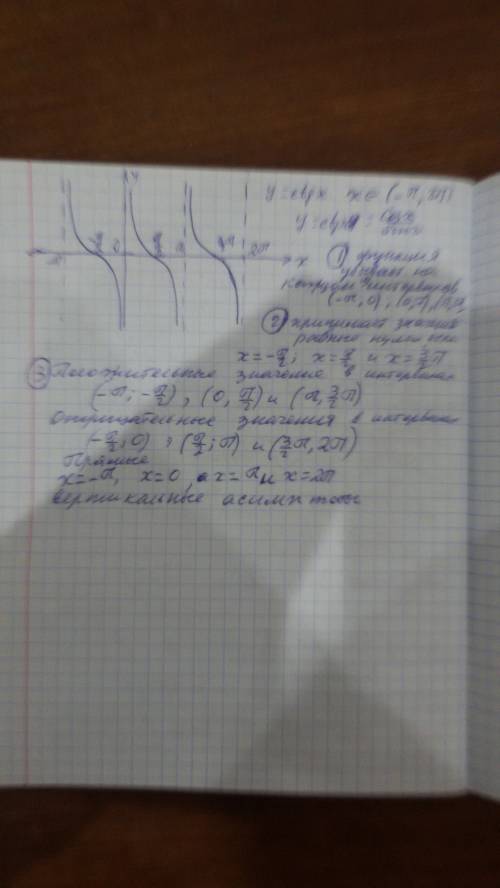 y
-π -π/2 0 π/2 π 3/2π 2π x
y = ctgx x∈ (-π, 2π)
y = ctgx = cosx/sinx
① функция
убывает на
каждом интервалов
(-π, 0), (0, π),
② принимает значения
равные нулю при
x=-π/2; x=π/2 и x=3/2π
③ Положительные значения в интервалах
(-π; -π/2), (0, π/2) и (π, 3/2π)
Отрицательные значения в интервалах
(-π/2; 0), (π/2; π) и (3/2π, 2π)
Прямые
x=-π, x=0, x=π и x=2π
вертикальные асимптоты